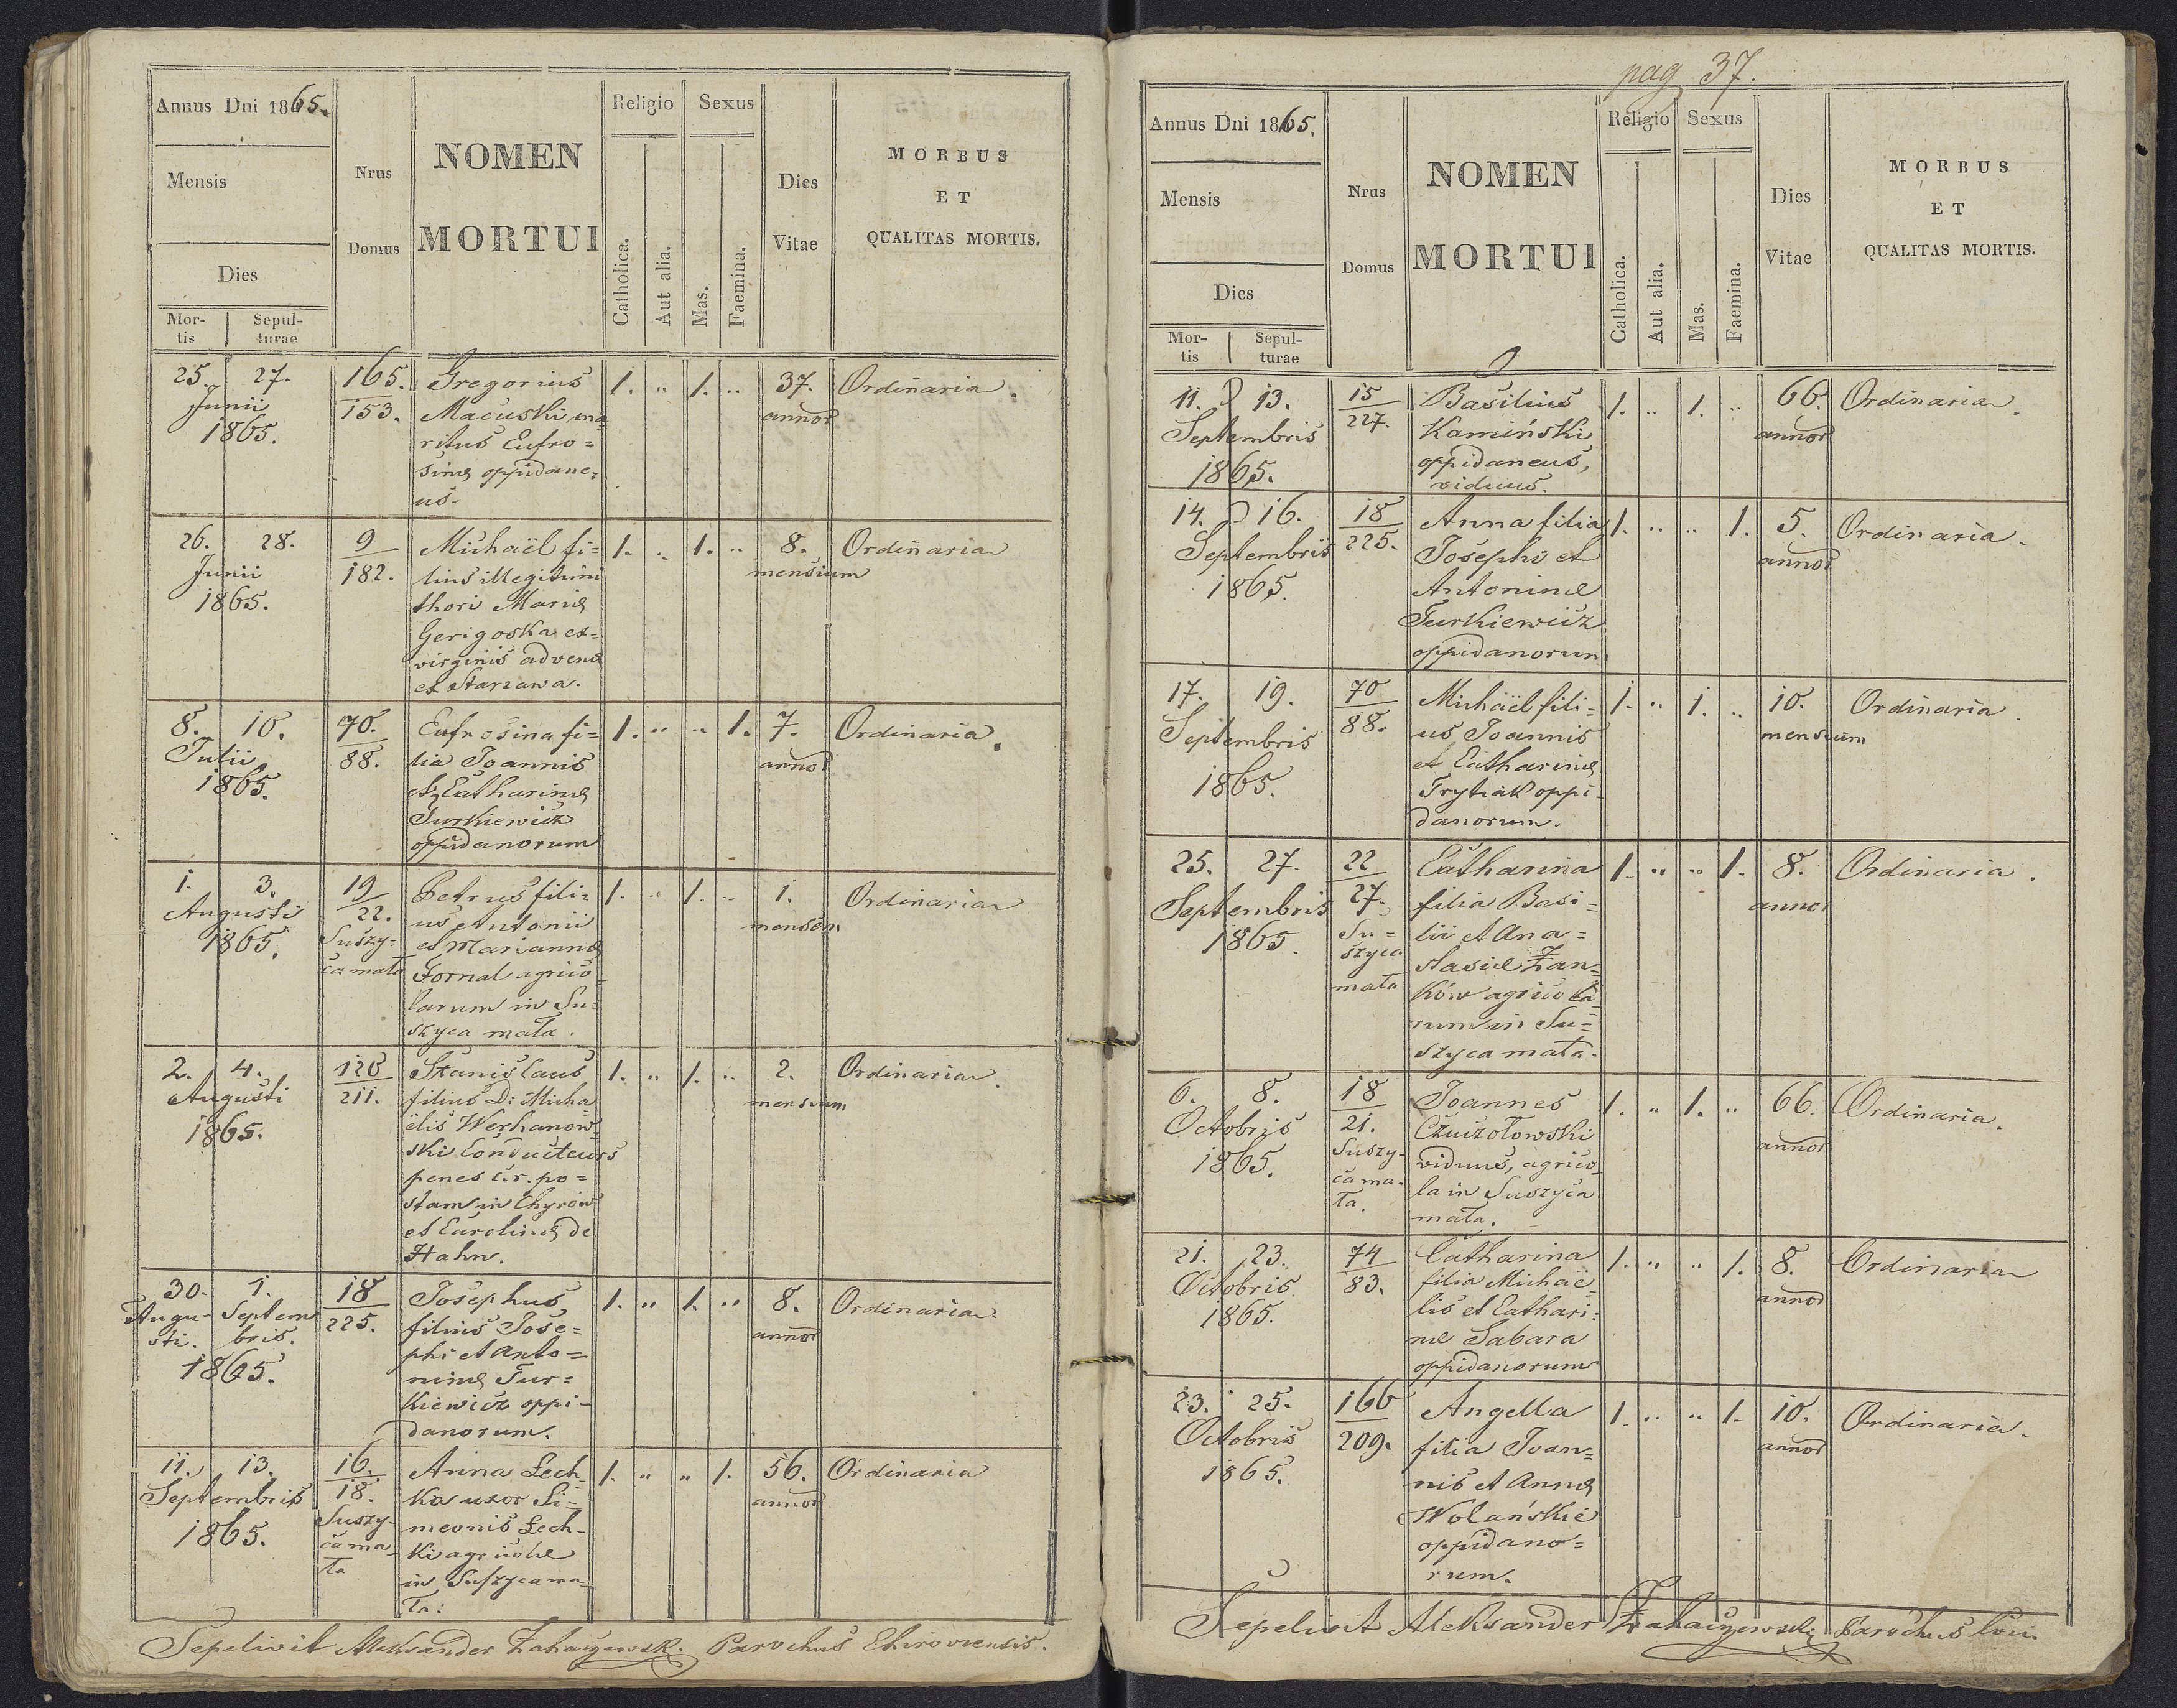 Annus Dni 1865.
Mensis
Dies
Mor-
tis
Sepul-
turae
Nrus
Domus
NOMEN
MORTUI
Religio
Catholica.
Aut alia.
Sexus
Mas.
Faemina.
Dies
Vitae
MORBUS
ET
QUALITAS MORTIS.
25. 27.
Junii
1865.
165.
153.
Gregorius
Macuski ma
ritus Eufro=
sinæ oppidane=
us.
1. " 1. "
37.
annor
Ordinaria.
26. 28.
Junii
1865.
9
182.
Michaël fi=
lius illegitimi
thori Mariæ
Gerigoska ex=
virginis advenæ
ex Starzawa.
1. " 1. "
8.
mensium
Ordinaria
8. 10.
Julii
1865.
70.
88.
Eufrosina fi=
lia Joannis
et Catharinæ
Turkiewicz
oppidanorum
1. " " 1.
7.
annor
Ordinaria.
1. 3.
Augusti
1865.
19
22.
Suszy=
ca mała
Petrus fili=
us Antonii
et Mariannæ
Fornal agrico
larum in Su=
szyca mała.
1. " 1. "
1.
mensem
Ordinaria
2. 4.
Augusti
1865.
120
211.
Stanislaus
filius D: Micha
ëlis Werhanow=
ski Conducteurs
penes c.r. po=
stam in Chyrów
et Carolinæ de
Hahn.
1. " 1. "
2.
mensium
Ordinaria.
30. 1.
Augu- Septem
sti. bris.
1865.
18
225.
Josephus
filius Jose=
phi et Anto=
ninæ Tur=
kiewicz oppi-
danorum.
1. " 1. "
8.
annor
Ordinaria.
11. 13.
Septembris
1865.
16.
18.
Suszy-
ca ma-
ła
Anna Lech-
ka uxor Si=
meonis Lech-
ki agricolæ
in Suszyca ma
ła.
1. " " 1.
56.
annor
Ordinaria
Sepelivit Aleksander Parochus Chiroviensis.
pag 37.
Annus Dni 1865.
Mensis
Dies
Mor-
tis
Sepul-
turae
Nrus
Domus
NOMEN
MORTUI
Religio
Catholica.
Aut alia.
Sexus
Mas.
Faemina.
Dies
Vitae
MORBUS
ET
QUALITAS MORTIS.
11. 13.
Septembris
1865.
15
227.
Basilius
Kamiński
oppidaneus,
viduus.
1. " 1. "
66.
annor
Ordinaria.
14. 16.
Septembris
1865.
18
225.
Anna filia
Josephi et
Antoninæ
Turkiewicz
oppidanorum
1. " " 1.
5.
annor
Ordinaria.
17. 19.
Septembris
1865.
70
88.
Michaël fili=
us Joannis
et Catharinæ
Trytiak oppi-
danorum.
1. " 1. "
10.
mensium
Ordinaria.
25. 27.
Septembris
1865.
22
27.
Su=
szyca
mała
Catharina
filia Basi=
lii et Ana=
stasiæ Żan=
ków agricola
rum in Su=
szyca mała.
1. " " 1.
8.
annor
Ordinaria.
6. 8.
Octobris
1865.
18
21.
Suszy-
ca ma-
ła.
Joannes
viduus, agrico
la in Suszyca
mała.
1. " 1. "
66.
annor
Ordinaria.
21. 23.
Octobris
1865.
74
83.
Catharina
filia Michaë
lis et Cathari=
næ Sabara
oppidanorum
1. " " 1.
8.
annor
Ordinaria
23. 25.
Octobris
1865.
166
209.
Angella
filia Joan=
nis et Annæ
Wolańskie
oppidano=
rum.
1. " " 1.
10.
annor
Ordinaria.
Sepelivit Aleksander Parochus